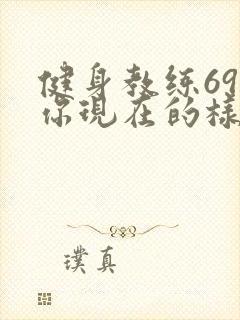 健身教练69
你现在的樣
璞真